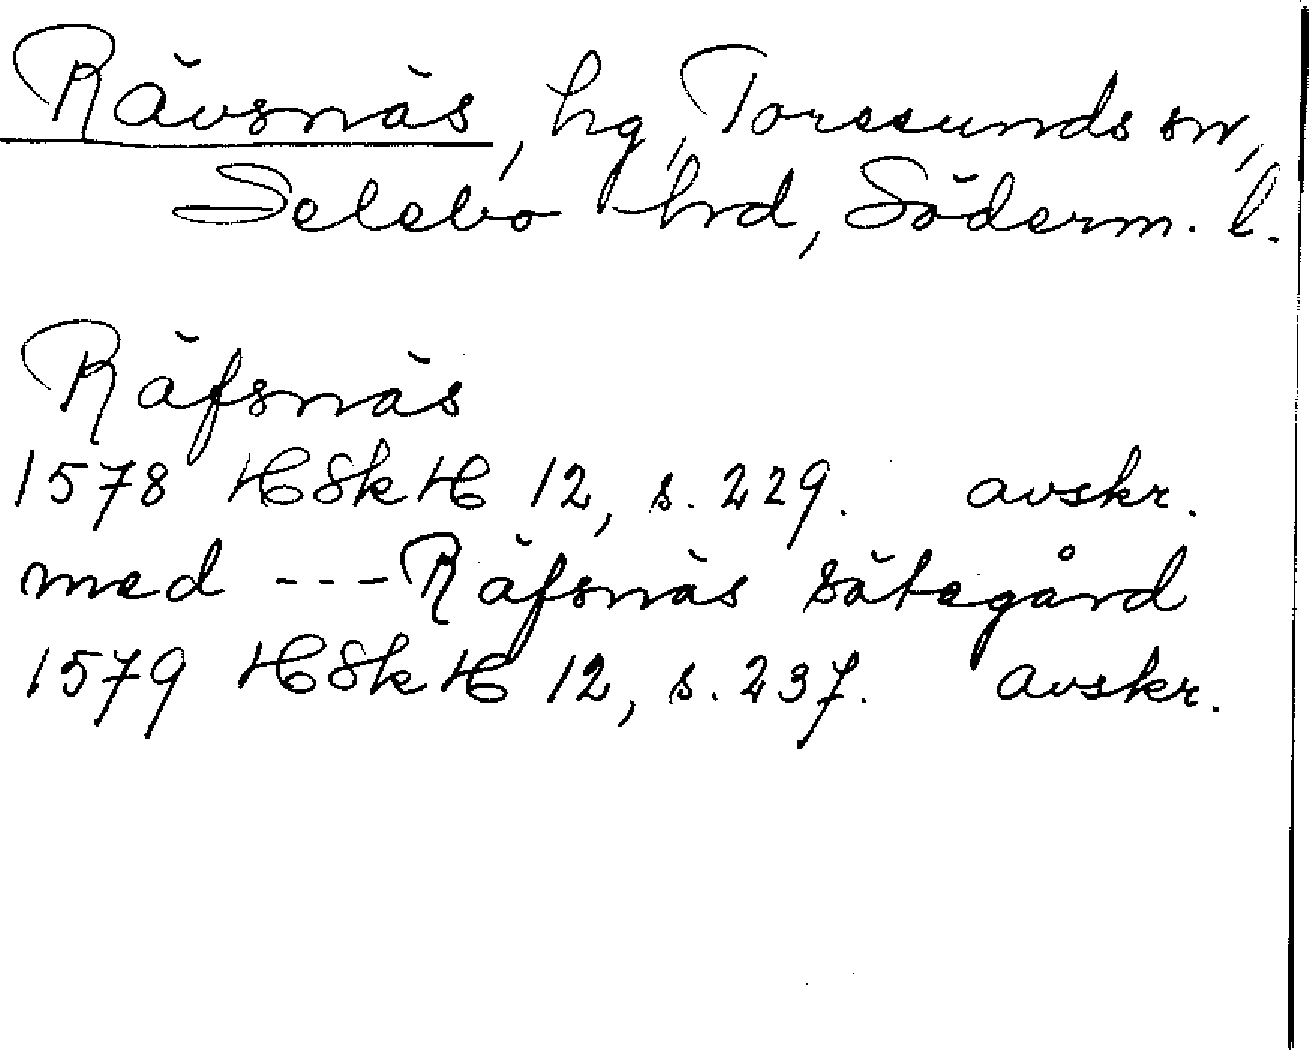 Rävsnäs, hg, Torssunds sn,
Selebo hrd, Söderm. l.
Räfsnäs
1578 HSkH 12, s. 229. avskr.
med --- Räfsnäs sätegård
1579 HSkH 12, s. 237. avskr.